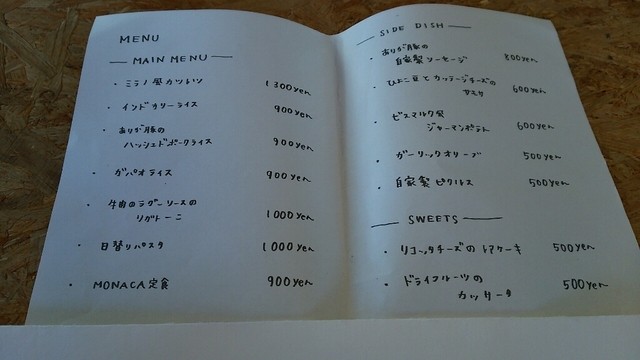 MENU
MAIN MENU
・ミラノ風カツレツ 1300yen
・インドカリーライス 900yen
・ありが豚の
ハッシュドポークライス 900yen
・ガパオライス 900yen
・牛肉のラグーソースの
リガトーニ 1000yen
・日替りパスタ 1000yen
・MONACA定食 900yen
SIDE DISH
・ありが豚の
自家製ソーセージ 800yen
・ひよこ豆とカッテージチーズの
サラダ 600yen
・ビスマルク風
ジャーマンポテト 600yen
・ガーリックオリーブ 500yen
・自家製ピクルス 500yen
SWEETS
・リコッタチーズのレアケーキ 500yen
・ドライフルーツの
カッサータ 500yen